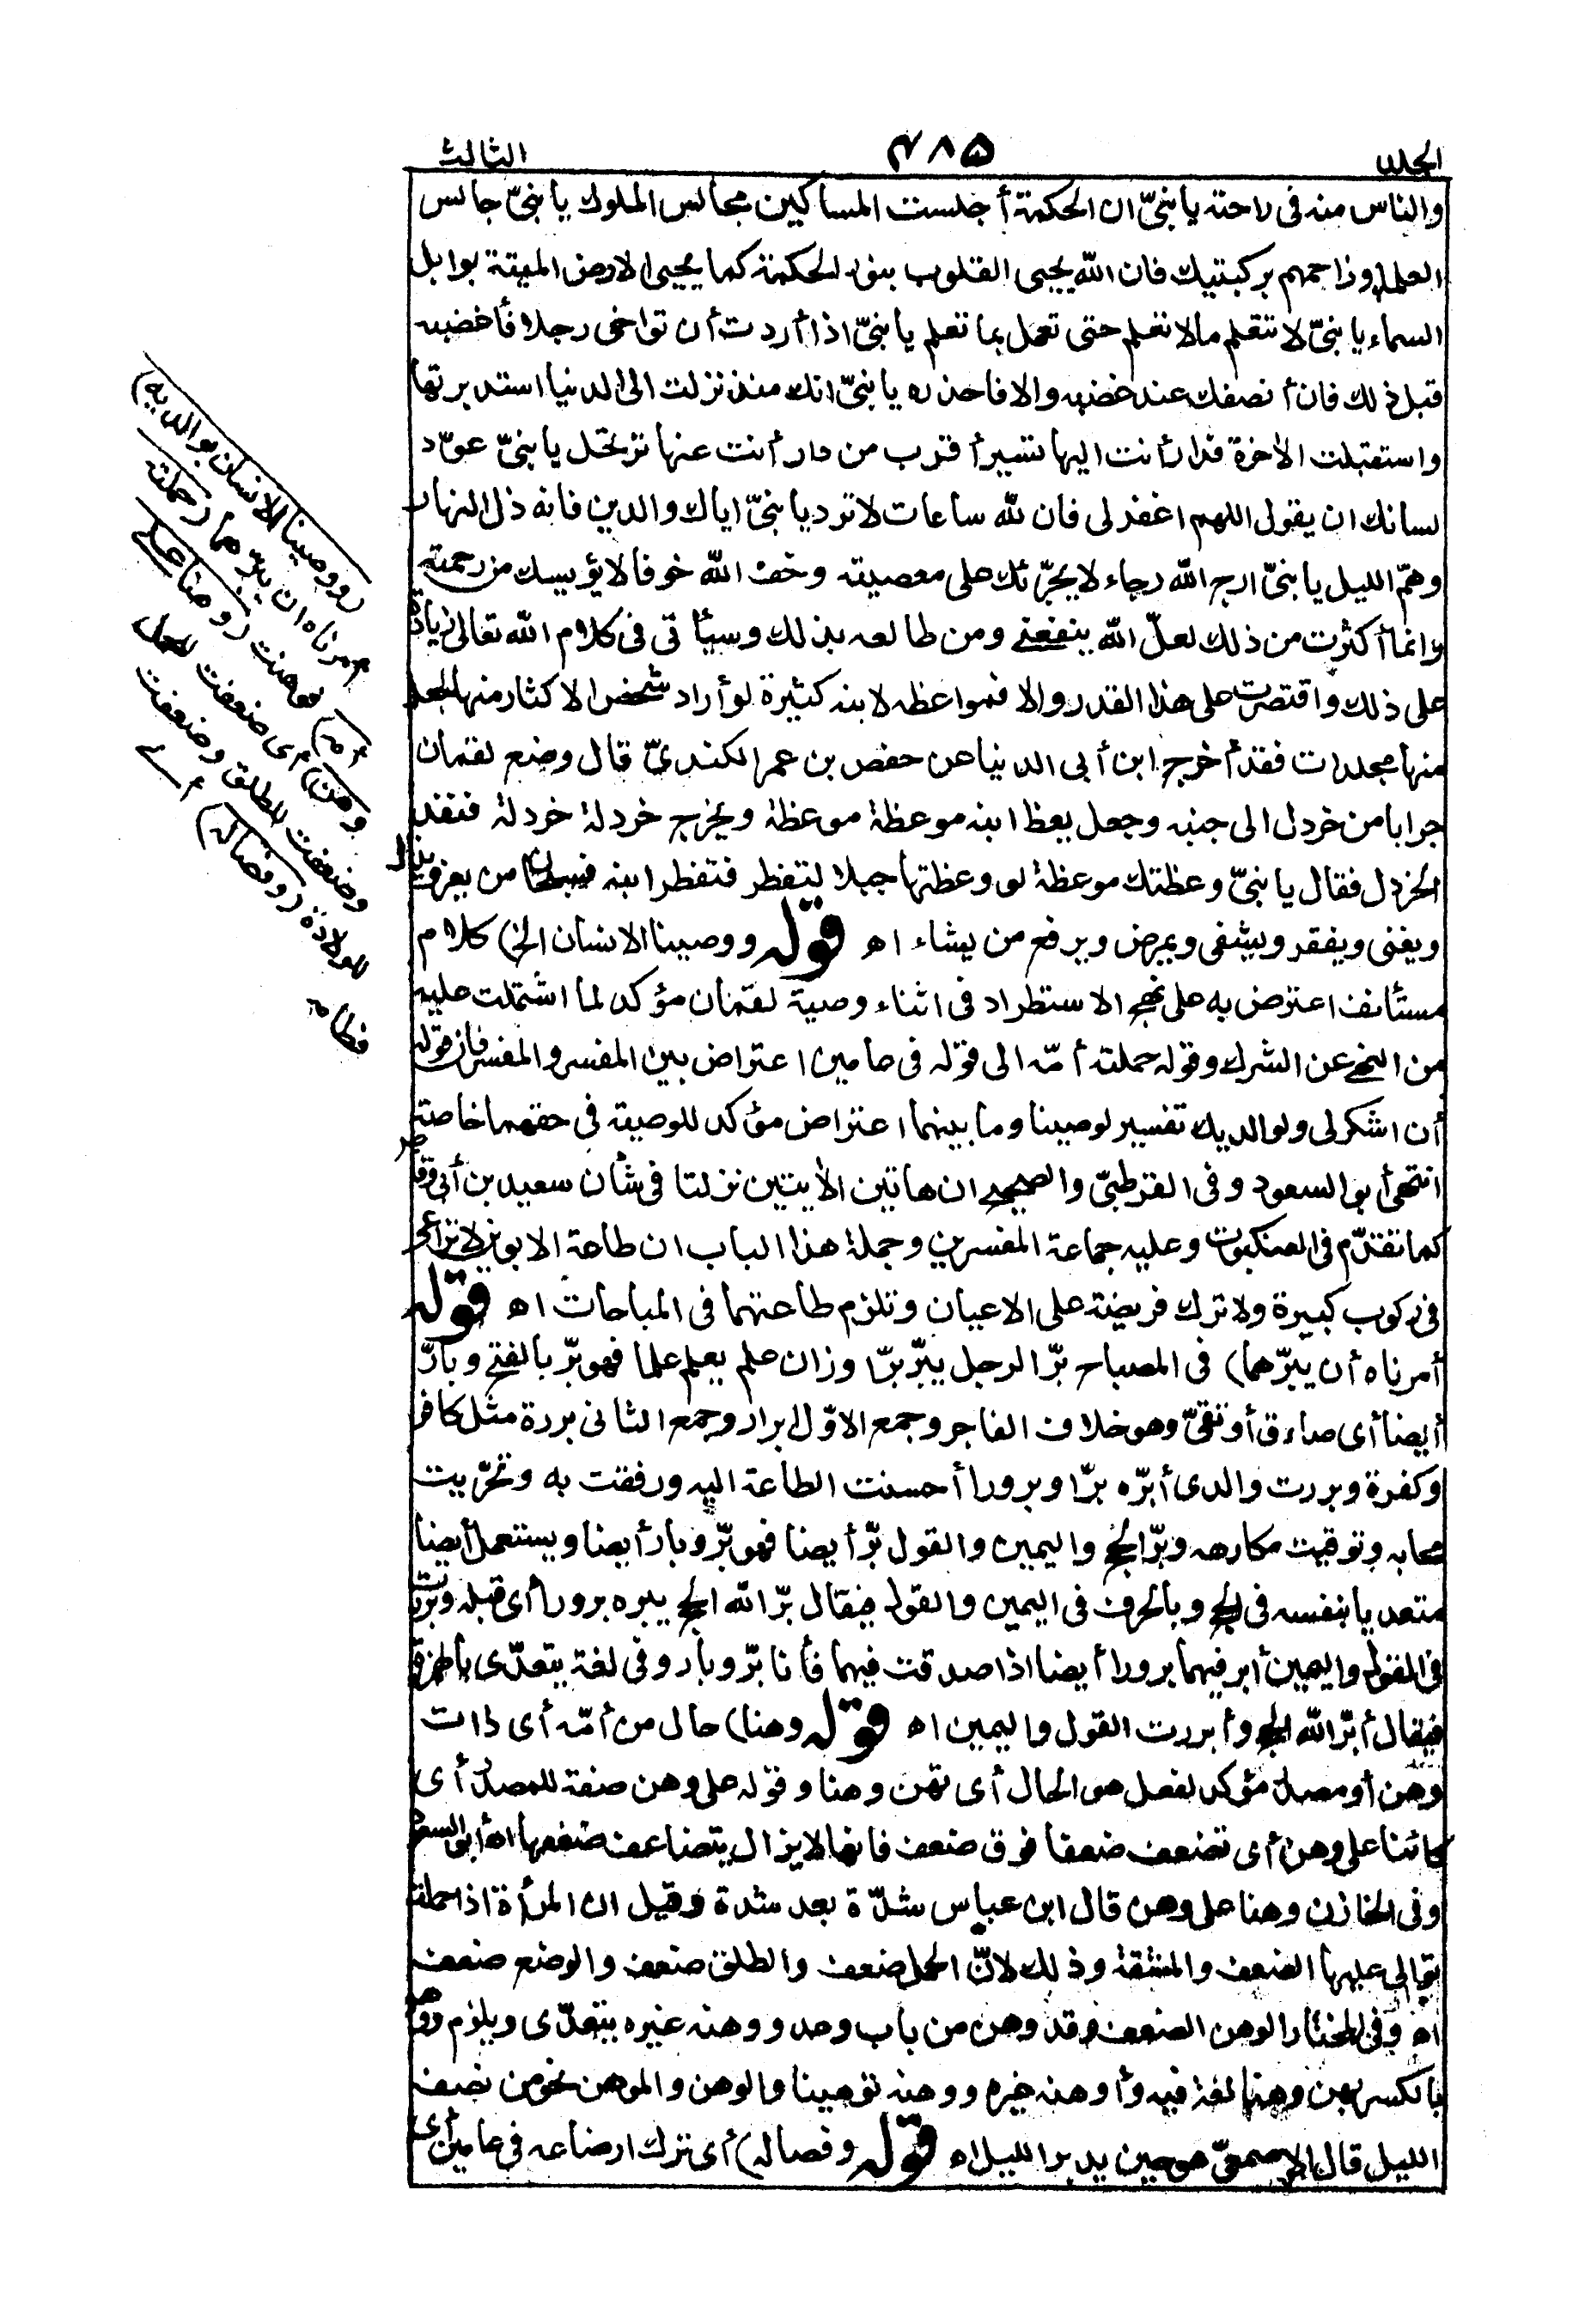 الجلد
٤٨٥
الثالث
والناس منه فى راحة يا بنىّ ان الحكمة أجلست المساكين مجالس الملوك يا بنىّ جالس
العلماء وزاحمهم بركبتيك فان الله يحيى القلوب بنور الحكمة كما يحيى الارض الميتة بوابل
السماء يا بنىّ لا تتعلم مالا تعلم حتى تعمل بما تعلم يا بنىّ اذا أردت أن تواخى رجلا فأغضبه
قبل ذلك فان أنصفك عند غضبه والا فاحذره يا بنىّ انك منذ نزلت الى الدنيا استدبرتها
واستقبلت الاخرة فدار أنت اليها تسير أقرب من دار أنت عنها ترتحل يا بنىّ عوّد
لسانك ان يقول اللهم اغفر لى فان لله ساعات لا ترد يا بنىّ اياك والدين فانه ذل النهار
وهمّ الليل يا بنىّ ارج الله رجاء لا يجرّئك على معصيته وخف الله خوفا لا يؤيسك من رحمته
وانما أكثرت من ذلك لعلّ الله ينفعنى ومن طالعه بذلك وسيأتى فى كلام الله تعالى زيادة
على ذلك واقتصرت على هذا القدر والا فمواعظه لابنه كثيرة لو أراد شخص الاكثار منها لجعل
منها مجلدات فقد أخرج ابن أبى الدنيا عن حفص بن عمر الكندىّ قال وضع لقمان
جرابا من خردل الى جنبه وجعل يعظ ابنه موعظة موعظة ويخرج خردلة خردلة فنفذ
الخردل فقال يا بنىّ وعظتك موعظة لو وعظتها جبلا لتفطر فتفطر ابنه فسبحان من يعز ويذل
ويغنى ويفقر ويشفى ويمرض ويرفع من يشاء اه قوله ووصينا الانسان الخ) كلام
مستأنف اعترض به على نهج الاستطراد فى اثناء وصية لقمان مؤكد لما اشتملت عليه
من النهى عن الشرك وقوله حملته أمّه الى قوله فى عامين اعتراض بين المفسر والمفسر فان قوله
أن اشكر لى ولوالديك تفسير لوصينا وما بينهما اعتراض مؤكد للوصية فى حقهما خاصة
انتهى أبو السعود وفى القرطبىّ والصحيح ان هاتين الايتين نزلتا فى شأن سعيد بن أبى وقاص
كما تقدّم فى العنكبوت وعليه جماعة المفسرين وجملة هذا الباب ان طاعة الابوين لا تراعى
فى ركوب كبيرة ولا ترك فريضة على الاعيان وتلزم طاعتهما فى المباحات اه قوله
أمرناه أن يبرّهما) فى المصباح برّ الرجل يبرّ برّا وزان علم يعلم علما فهو برّ بالفتح وبارّ
أيضا أى صادق أو تقىّ وهو خلاف الفاجر وجمع الاوّل ابرار وجمع الثانى بررة مثل كافر
وكفرة وبررت والدى أبرّه برّا وبرورا أحسنت الطاعة اليه ورفقت به وتحرّيت
محابه وتوقيت مكارهه وبرّ الحج واليمين والقول برّ أيضا فهو برّ وبار أيضا ويستعمل أيضا
متعديا بنفسه فى الحج وبالحرف فى اليمين والقول فيقال برّ الله الحج يبره برورا أى قبله وبررت
فى القول واليمين أبر فيهما برورا أيضا اذا صدقت فيهما فأنا برّ وبار وفى لغة يتعدّى بالهمزة
فيقال أبرّ الله الحج وأبررت القول واليمين اه قوله وهنا) حال من أمّه أى ذات
وهن أو مصدر مؤكد لفعل هو الحال أى تهن وهنا وقوله على وهن صفة للمصدر أى
كائنا على وهن أى تضعف ضعفا فوق ضعف فانها لا يزال يتضاعف ضعفها اه أبو السعود
وفى الخازن وهنا على وهن قال ابن عباس شدّة بعد شدة وقيل ان المرأة اذا حملت
توالى عليها الضعف والمشقة وذلك لانّ الحمل ضعف والطلق ضعف والوضع ضعف
اه وفى المختار الوهن الضعف وقد وهن من باب وعد ووهنه غيره يتعدّى ويلزم ووهن
بالكسر يهن وهنا لغة فيه وأوهنه غيره ووهنه توهينا والوهن والموهن نحو من نصف
الليل قال الاصمعىّ هو حين يدبر الليل اه قوله وفصاله) أى ترك ارضاعه فى عامين أى
(ووصينا الانسان بوالديه)
امرناه ان يبرّهما (حملته
أمه) فوهنت (وهنا على
وهن) اى ضعفت للحمل
وضعفت للطلق وضعفت
للولادة (وفصاله) أى
فطامه